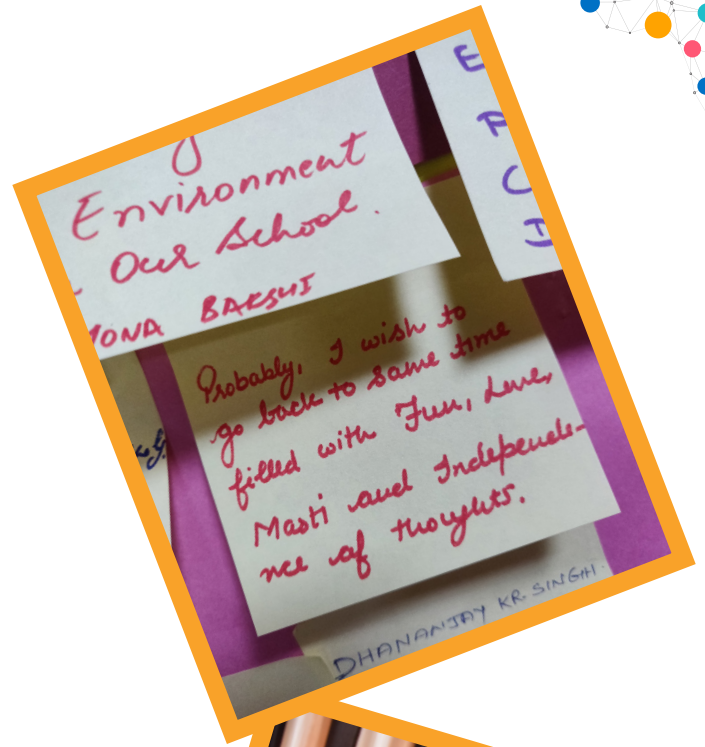 Environment
Our School.
BAKSHI
Probably, I wish to
go back to same time
filled with Fun, Love,
Masti and Independe-
nce of thoughts.
DHANANJAY KR. SINGH.
E
R
C
I